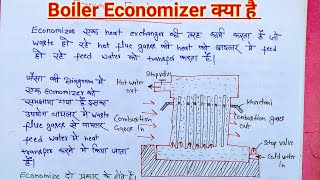 Boiler Economizer क्या है
Economizer एक heat exchanger की तरह कार्य करता है जो
waste हो रहे hot flue gases की heat को बायलर में feed
हो रहे feed water को transfer करता है।
जैसा की Diagram में
एक economizer को
समझाया गया है इसका
उपयोग बायलर में waste
flue gases से बायलर
feed water में heat
transfer करने में किया जाता
है।
Economize दो प्रकार के होते हैं।
Stop valve
Hot water
out
Combustion
Gases In
Combustion gases
out
Stop valve
Cold water
in